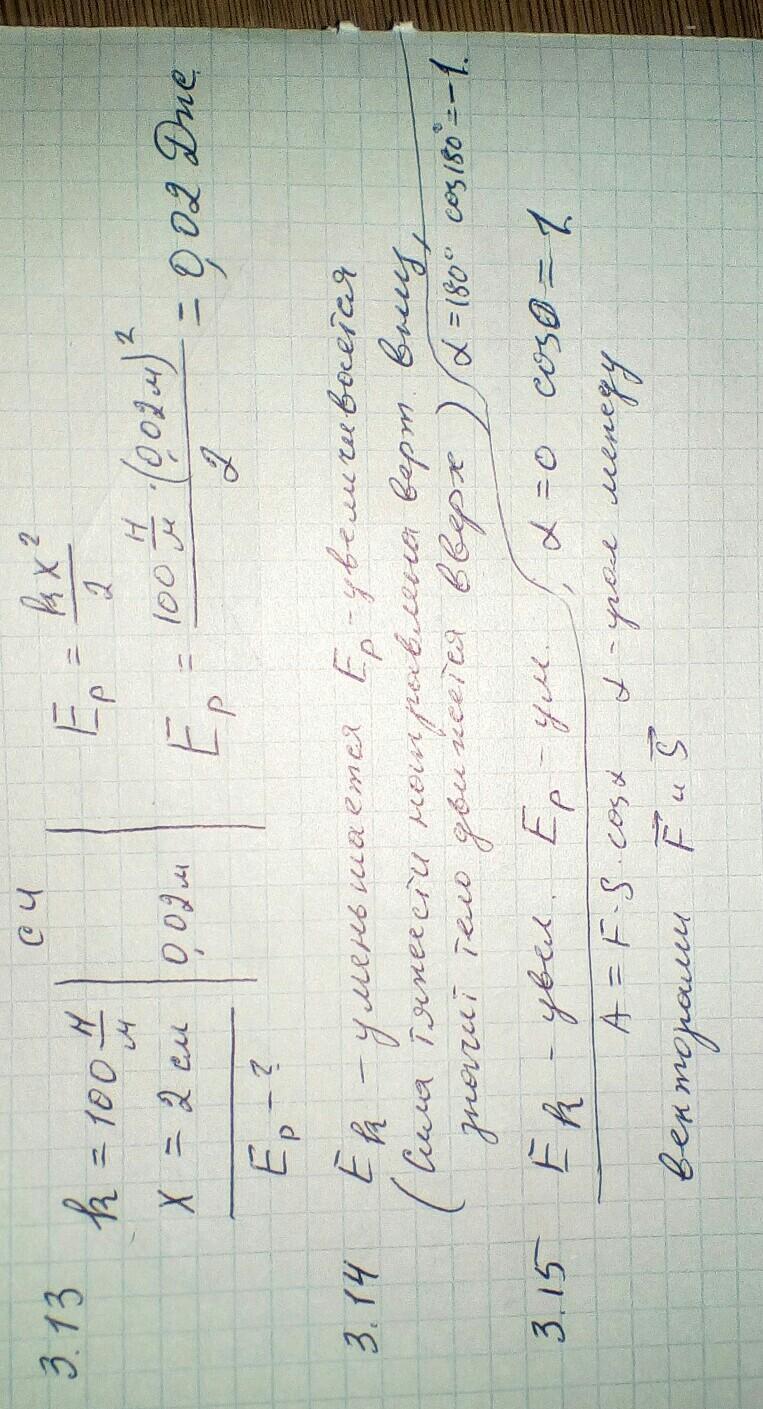 3.13
СИ
k = 100 Н/м
x = 2 см | 0,02 м
Eр - ?
Eр = kx²/2
Eр = 100 Н/м · (0,02 м)²/2 = 0,02 Дж
3.14 Eк - уменьшается Eр - увеличивается
(Сила тяжести направлена верт. вниз,
значит тело движется вверх) α = 180° cos180° = -1.
3.15 Eк - увел. Eр - ум., α = 0 cos0 = 1
A = F·S·cosα α - угол между
векторами F⃗ и S⃗